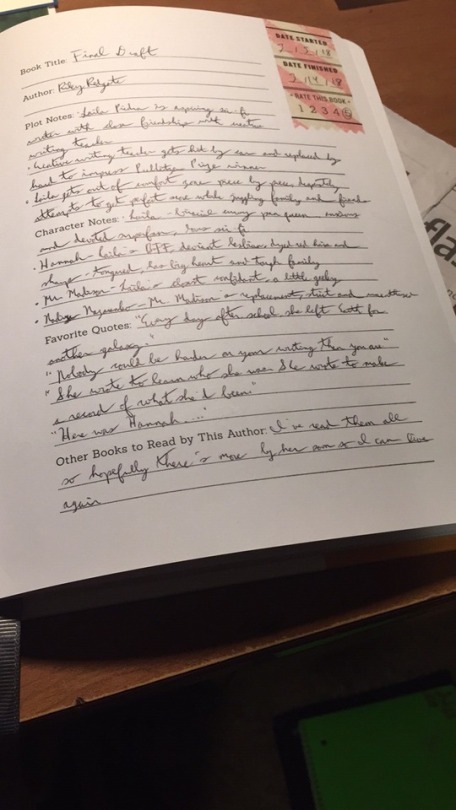 DATE STARTED
2/3/18
DATE FINISHED
2/4/18
RATE THIS BOOK
1 2 3 4 5
Book Title: Final Draft
Author: Riley Redgate
Plot Notes: Laila is aspiring sci-fi
writer with close friendship with creative
writing teacher
• Creative writing teacher gets hit by car and replaced by
hard to impress Pulitzer Prize winner
• Laila gets out of comfort zone piece by piece, desperately
attempts to get perfect score while juggling family and friends
Character Notes: Laila - anxious
and devoted superfan, loves sci-fi
• Hannah - Laila's BFF, deviant lesbian, dyed red hair and
sharp-tongued, has big heart and tough family
• Mr. Madison - Laila's closest confidant, a little geeky
• Nazarenko - Mr. Madison's replacement, strict and
Favorite Quotes: "Every day after school she left Earth for
another galaxy"
"Nobody could be harder on your writing than you are"
"She wrote to learn who she was. She wrote to make
a record of what she'd been"
"Here was Hannah..."
Other Books to Read by This Author: I've read them all
so hopefully there's more by her soon so I can love
again
fla